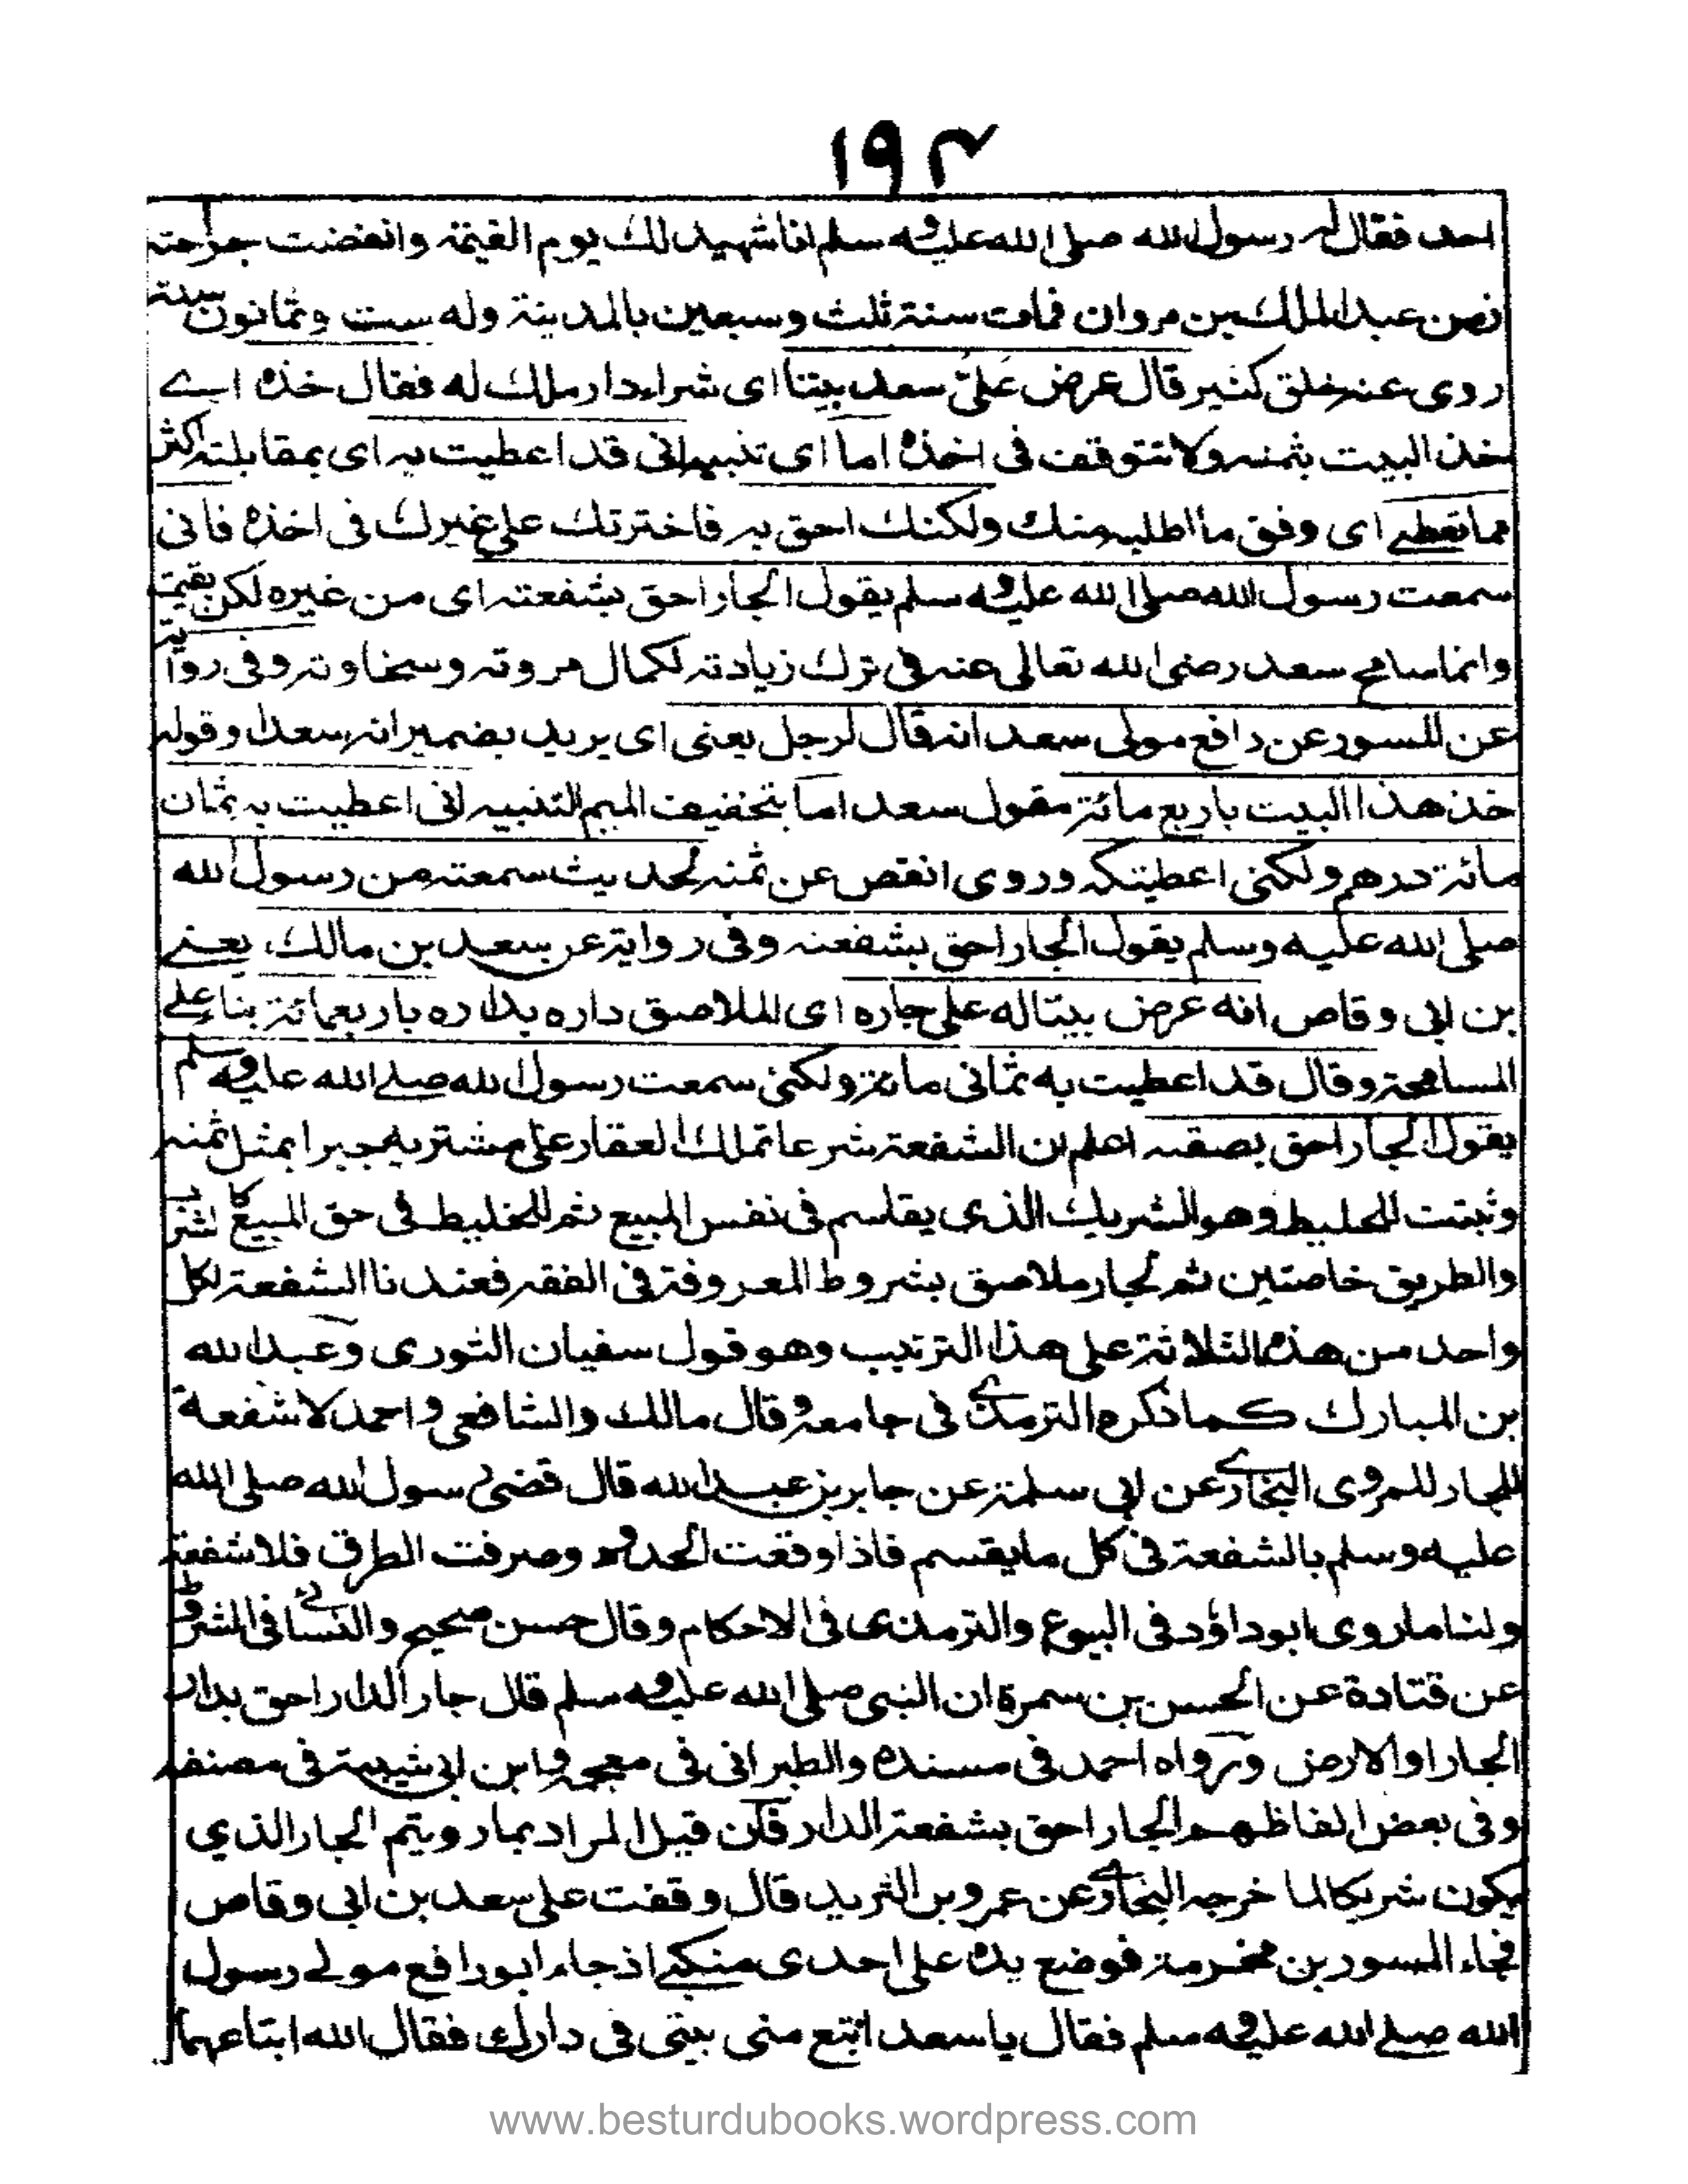 ١٩٤
احد فقال له رسول الله صلى الله عليه وسلم انا شهيد لك يوم القيمة وانتقضت جراحته
زمن عبد الملك بن مروان فمات سنة ثلث وسبعين بالمدينة وله ست وثمانون سنة
روى عنه خلق كثير قال عرض علىّ سعد بيتا اى شراء دار ملك له فقال خذه اے
خذ البيت بثمنه ولا تتوقف فى اخذه اما اى تنبيه انى قد اعطيت به اى بمقابلته اكثر
مما تعطے اى وفق ما اطلبه منك ولكنك احق به فاخترتك على غيرك فى اخذه فانى
سمعت رسول الله صلى الله عليه وسلم يقول الجار احق بشفعته اى من غيره لكن بقيمته
وانما سامح سعد رضى الله تعالى عنه فى ترك زيادته لكمال مروته وسخاوته وفى رواية
عن المسور عن رافع مولى سعد انه قال لرجل يعنى اى يريد بضمير انه سعدا وقوله
خذ هذا البيت باربع مائة مقول سعد اما بتخفيف الميم للتنبيه انى اعطيت به ثمان
مائة درهم ولكنى اعطيتكه وروى انقص عن ثمنه لحديث سمعته من رسول الله
صلى الله عليه وسلم يقول الجار احق بشفعته وفى رواية عن سعد بن مالك يعنے
بن ابى وقاص انه عرض بيتا له على جاره اى الملاصق داره بداره باربعمائة بناء علے
المسامحة وقال قد اعطيت به ثمانى مائة ولكنى سمعت رسول الله صلے الله عليه وسلم
يقول الجار احق بصقبه اعلم ان الشفعة شرعا تملك العقار على مشتريه جبرا بمثل ثمنه
وثبتت للخليط وهو الشريك الذى يقاسم فى نفس المبيع ثم للخليط فى حق المبيع كالشرب
والطريق خاصتين ثم لجار ملاصق بشروط المعروفة فى الفقه فعندنا الشفعة لكل
واحد من هذه الثلاثة على هذا الترتيب وهو قول سفيان الثورى وعبد الله
بن المبارك كما ذكره الترمذے فى جامعه وقال مالك والشافعى واحمد لا شفعة
للجار لما روى البخارے عن ابى سلمة عن جابر بن عبد الله قال قضى رسول الله صلى الله
عليه وسلم بالشفعة فى كل ما يقسم فاذا وقعت الحدود وصرفت الطرق فلا شفعة
ولنا ما روى ابو داؤد فى البيوع والترمذى فى الاحكام وقال حسن صحيح والنسائے فى الشروط
عن قتادة عن الحسن بن سمرة ان النبى صلى الله عليه وسلم قال جار الدار احق بدار
الجار او الارض ورواه احمد فى مسنده والطبرانى فى معجمه وابن ابى شيبة فى مصنفه
وفى بعض الفاظهم الجار احق بشفعة الدار فان قيل المراد بما رويتم الجار الذي
يكون شريكا لما خرجه البخارے عن عمرو بن الثريد قال وقفت على سعد بن ابى وقاص
فجاء المسور بن مخرمة فوضع يده على احدى منكبے اذ جاء ابو رافع مولے رسول
الله صلے الله عليه وسلم فقال يا سعد ابتع منى بيتى فى دارك فقال الله ابتاعهما
www.besturdubooks.wordpress.com